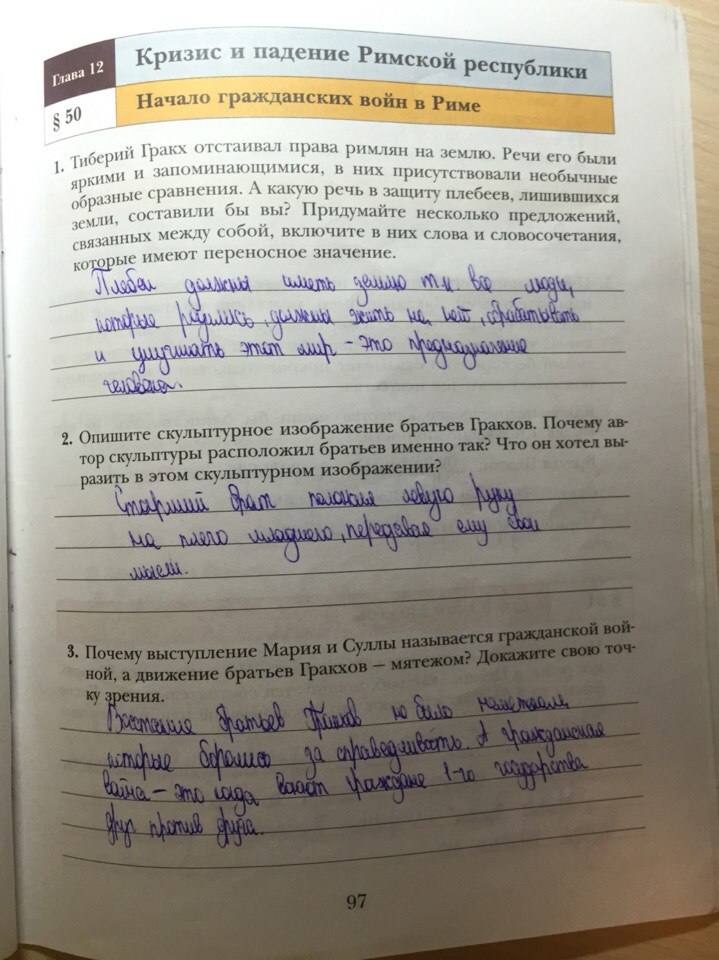 Глава 12
Кризис и падение Римской республики
§ 50
Начало гражданских войн в Риме
1. Тиберий Гракх отстаивал права римлян на землю. Речи его были
яркими и запоминающимися, в них присутствовали необычные
образные сравнения. А какую речь в защиту плебеев, лишившихся
земли, составили бы вы? Придумайте несколько предложений,
связанных между собой, включите в них слова и словосочетания,
которые имеют переносное значение.
Плебеи должны иметь землю т.к. все люди,
которые родились, должны жить на ней, обрабатывать
и улучшать этот мир – это предназначение
человека.
2. Опишите скульптурное изображение братьев Гракхов. Почему ав-
тор скульптуры расположил братьев именно так? Что он хотел вы-
разить в этом скульптурном изображении?
Старший брат положил левую руку
на плечо младшего, передавая ему свои
мысли.
3. Почему выступление Мария и Суллы называется гражданской вой-
ной, а движение братьев Гракхов — мятежом? Докажите свою точ-
ку зрения.
Восстание братьев Гракхов было мятежом,
которые боролись за справедливость. А гражданская
война – это когда граждане 1-го государства
друг против друга.
97